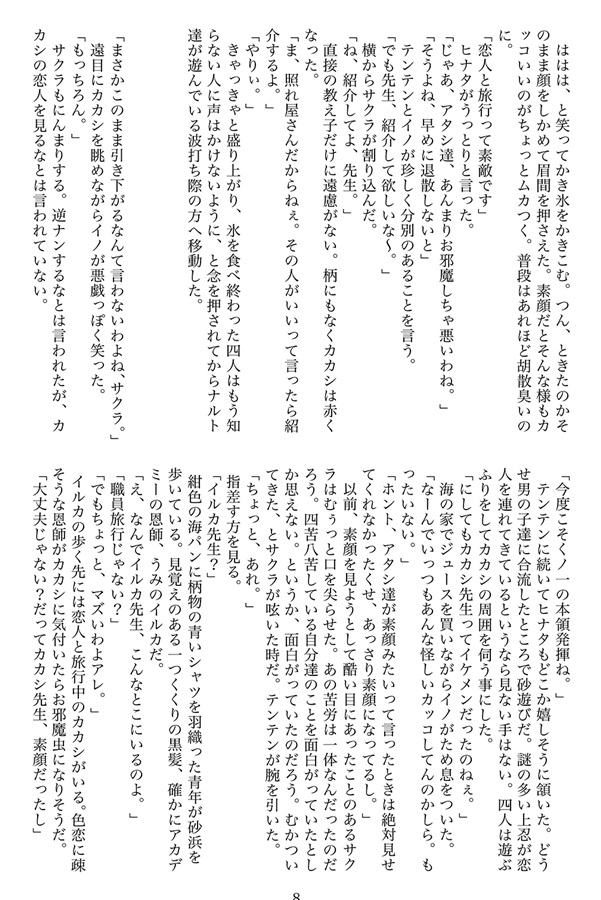 ははは、と笑ってかき氷をかきこむ。つん、ときたのかそ
のまま顔をしかめて眉間を押さえた。素顔だとそんな様もカ
ッコいいのがちょっとムカつく。普段はあれほど胡散臭いの
に。
「恋人と旅行って素敵です」
ヒナタがうっとりと言った。
「じゃあ、アタシ達、あんまりお邪魔しちゃ悪いわね。」
「そうよね、早めに退散しないと」
テンテンとイノが珍しく分別のあることを言う。
「でも先生、紹介して欲しいな〜。」
横からサクラが割り込んだ。
「ね、紹介してよ、先生。」
直接の教え子だけに遠慮がない。柄にもなくカカシは赤く
なった。
「ま、照れ屋さんだからねぇ。その人がいいって言ったら紹
介するよ。」
「やりぃ。」
きゃっきゃと盛り上がり、氷を食べ終わった四人はもう知
らない人に声はかけないように、と念を押されてからナルト
達が遊んでいる波打ち際の方へ移動した。
「まさかこのまま引き下がるなんて言わないわよね、サクラ。」
遠目にカカシを眺めながらイノが悪戯っぽく笑った。
「もっちろん。」
サクラもにんまりする。逆ナンするなとは言われたが、カ
カシの恋人を見るなとは言われていない。
「今度こそくノ一の本領発揮ね。」
テンテンに続いてヒナタもどこか嬉しそうに頷いた。どう
せ男の子達に合流したところで砂遊びだ。謎の多い上忍が恋
人を連れてきているというなら見ない手はない。四人は遊ぶ
ふりをしてカカシの周囲を伺う事にした。
「にしてもカカシ先生ってイケメンだったのねぇ。」
海の家でジュースを買いながらイノがため息をついた。
「なーんでいっつもあんな怪しいカッコしてんのかしら。も
ったいない。」
「ホント、アタシ達が素顔みたいって言ったときは絶対見せ
てくれなかったくせ、あっさり素顔になってるし。」
以前、素顔を見ようとして酷い目にあったことのあるサク
ラはむぅっと口を尖らせた。あの苦労は一体なんだったのだ
ろう。四苦八苦している自分達のことを面白がっていたとし
か思えない。というか、面白がっていたのだろう。むかつい
てきた、とサクラが呟いた時だ。テンテンが腕を引いた。
「ちょっと、あれ。」
指差す方を見る。
「イルカ先生？」
紺色の海パンに柄物の青いシャツを羽織った青年が砂浜を
歩いている。見覚えのある一つくくりの黒髪、確かにアカデ
ミーの恩師、うみのイルカだ。
「え、なんでイルカ先生、こんなとこにいるのよ。」
「職員旅行じゃない？」
「でもちょっと、マズいわよアレ。」
イルカの歩く先には恋人と旅行中のカカシがいる。色恋に疎
そうな恩師がカカシに気付いたらお邪魔虫になりそうだ。
「大丈夫じゃない？だってカカシ先生、素顔だったし」
8